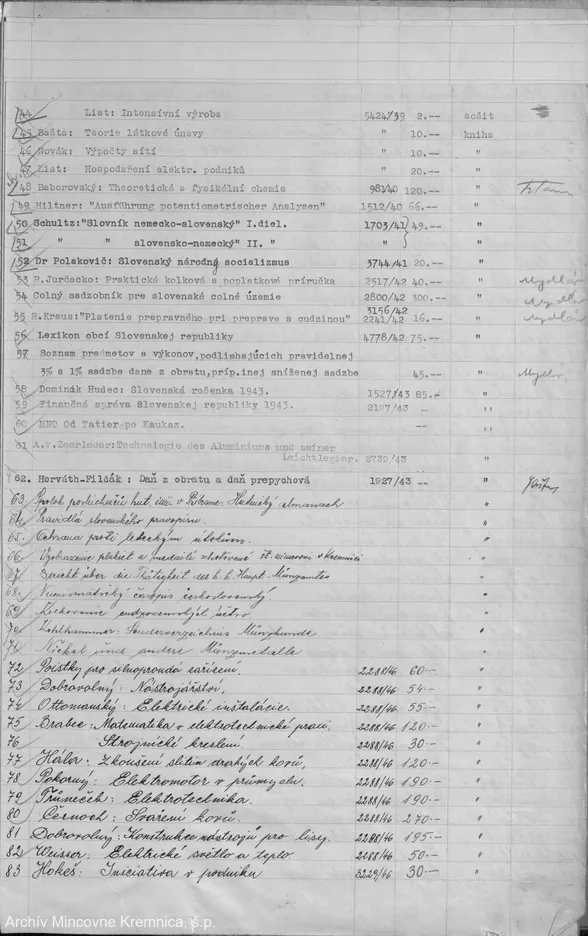 44 List: Intensívní výroba 5424/39 2.-- sošit
45 Bašta: Teorie látkové únavy " 10.-- kniha
46 Novák: Výpočty sítí " 10.-- "
47 List: Hospodaření elektr. podniků " 20.-- "
48 Baborovský: Theoretická a fysikální chemie 981/40 120.-- "
49 Hiltner: "Ausführung potentiometrischer Analysen" 1512/40 66.-- "
50 Schultz: "Slovník nemecko-slovenský" I.diel. 1703/41 49.-- "
51 " " slovensko-nemecký" II. " " "
52 Dr Polakovič: Slovenský národný socializmus 3744/41 20.-- "
53 R.Jurčacko: Praktická kolková a poplatková príručka 2517/42 40.-- " Mydlár
54 Colný sadzobník pre slovenské colné územie 2800/42 300.-- " Mydlár
3156/42
55 R.Kraus:"Platenie prepravného pri preprave s cudzinou" 2241/42 16.-- " Mydlár
56 Lexikon obcí Slovenskej republiky 4778/42 75.-- "
57 Soznam predmetov a výkonov,podliehajúcich pravidelnej
3% a 1% sadzbe dane z obratu,príp.inej sníženej sadzbe 45.-- "
58 Dominik Hudec: Slovenská ročenka 1943. 1527/43 85.-- "
59 Finančná správa Slovenskej republiky 1943. 2197/43 -- "
60 MNO Od Tatier po Kaukaz. -- "
61 A.v.Zeerleder:Technologie des Aluminiums und seiner
Leichtlegier. 2739/43 "
62. Horváth-Filčák : Daň z obratu a daň prepychová 1927/43 -- "
63. Spolek posluchačů hut. inž. v Příbrame: Hutnický almanach "
64. Pravidlá slovenského pravopisu. "
65. Ochrana proti leteckým útokom. "
66 Vyobrazenie plakiet a medailí zhotovené št. mincovni v Kremnici "
67 Bericht über die Thätigkeit des k.k. Haupt-Münzamtes "
68. Numismatický časopis československý. "
69 "
70 Sonderverzeichnis Münzkunde "
71 Nickel und andere Münzmetalle "
72 Poistky pro silnoproudá zařízení. 2288/46 60-- "
73 Dobrovolný: Nástrojářství. 2288/46 54-- "
74 Ottomanský: Elektrické instalácie. 2288/46 55-- "
75 Brabec: Matematika v elektrotechnické praxi. 2288/46 120-- "
76 Strojnické kreslení 2288/46 30-- "
77 Hála: Zkoušení slitin drahých kovů. 2288/46 120-- "
78. Pokorný: Elektromotor v průmyslu. 2288/46 190-- "
79 Průneček: Elektrotechnika. 2288/46 190-- "
80 Černoch: Sváření kovů. 2288/46 270-- "
81 Dobrovolný: Konstrukce nástrojů pro lisy. 2288/46 195-- "
82 Weisser: Elektrické světlo a teplo. 2288/46 50-- "
83 Hokeš: Iniciativa v podniku 3229/46 30-- "
Archív Mincovne Kremnica, š.p.